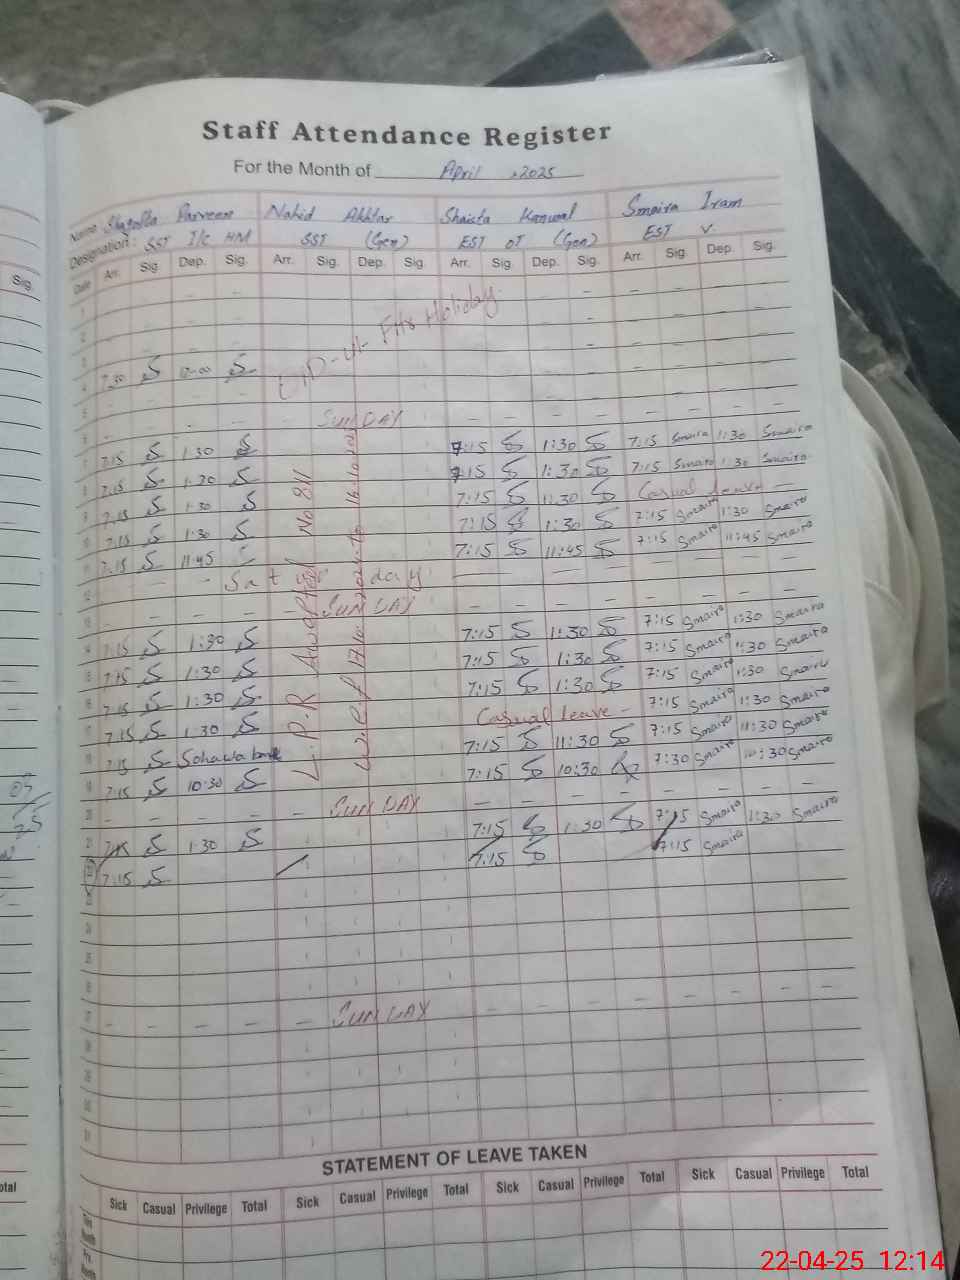 Staff Attendance Register
For the Month of April , 2025
Name Shagufta Parveen Nahid Akhtar Shaista Kanwal Smaira Iram
Designation: SST I/C HM SST (Gen) EST OT (Gen) EST V.
Date Arr. Sig. Dep. Sig. Arr. Sig. Dep. Sig. Arr. Sig. Dep. Sig. Arr. Sig. Dep. Sig.
Sig.
1
2
3
EID-ul-Fitr Holiday
4 7:30 S S
5
6 SUNDAY
7 7:15 S 1:30 S 7:15 S 1:30 S 7:15 Smaira 1:30 Smaira
8 7:15 S 1:30 S 7:15 S 1:30 S 7:15 Smaira 1:30 Smaira
9 7:15 S 1:30 S 7:15 S 11:30 S Casual leave
10 7:15 S 1:30 S 7:15 S 1:30 S 7:15 Smaira 1:30 Smaira
11 7:15 S 11:45 S 7:15 S 11:45 S 7:15 Smaira 11:45 Smaira
12 Sat day
13 SUNDAY
14 7:15 S 1:30 S 7:15 S 1:30 S 7:15 Smaira 1:30 Smaira
15 7:15 S 1:30 S 7:15 S 1:30 S 7:15 Smaira 1:30 Smaira
16 7:15 S 1:30 S 7:15 S 1:30 S 7:15 Smaira 1:30 Smaira
17 7:15 S 1:30 S Casual leave - 7:15 Smaira 1:30 Smaira
18 7:15 S Sohawa 7:15 S 11:30 S 7:15 Smaira 11:30 Smaira
19 7:15 S 10:30 S 7:15 S 10:30 7:30 Smaira 10:30 Smaira
20 SUNDAY
21 7:15 S 1:30 S 7:15 S 1:30 S 7:15 Smaira 1:30 Smaira
22 7:15 S 7:15 S 7:15 Smaira
L.P.R No 811
w.e.f
23
24
25
26
27 SUNDAY
28
29
30
31
STATEMENT OF LEAVE TAKEN
Sick Casual Privilege Total Sick Casual Privilege Total Sick Casual Privilege Total Sick Casual Privilege Total
This Month
22-04-25 12:14